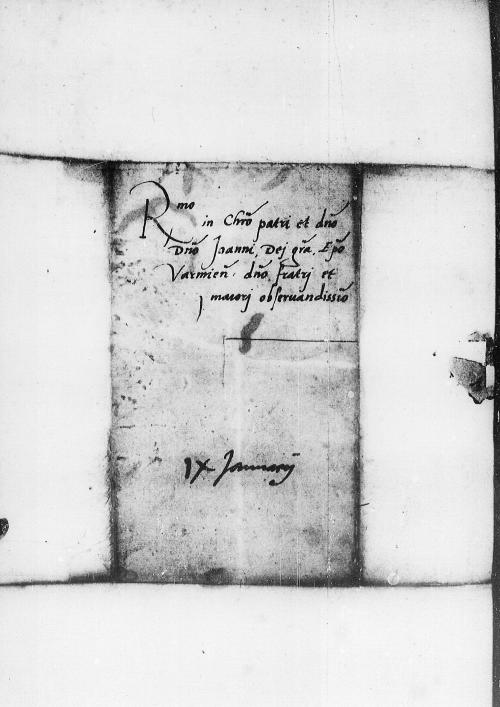 Rmo
in Chro patri et dno
Dno Joanni, Dej gra, Epo
Varmien. dno fratrj et
maiorj obseruandissio
IX Januarij